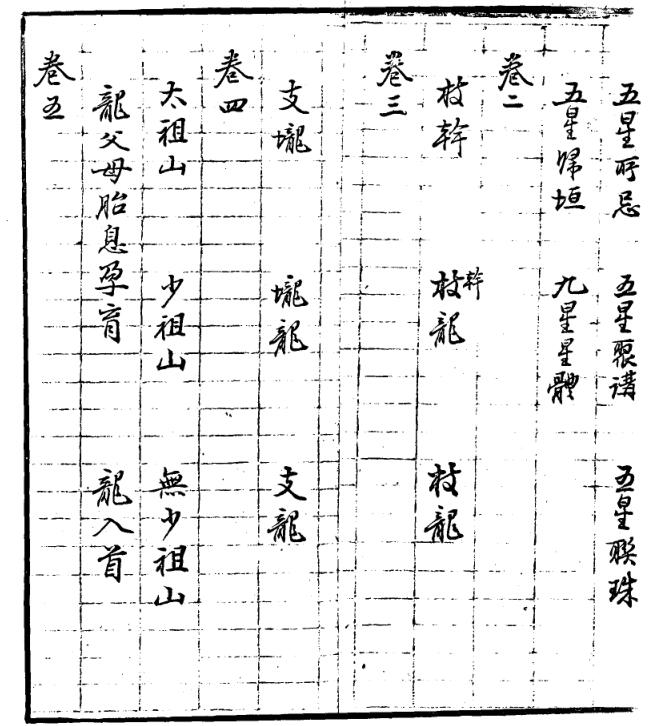 五星所忌 五星聚講 五星聯珠
五星歸垣 九星星體
卷二
枝幹 枝幹龍 枝龍
卷三
支壠 壠龍 支龍
卷四
太祖山 少祖山 無少祖山
龍父母胎息孕育 龍入首
卷五